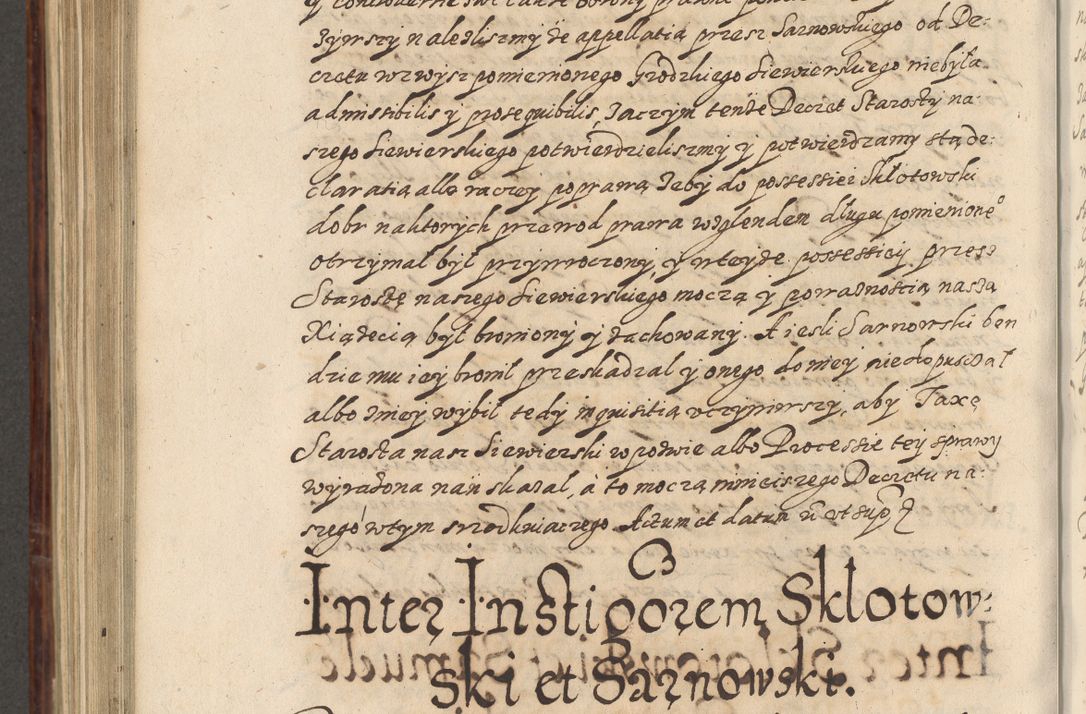 żywszy nalezliszmy że appellatia przesz Sarnowskiego od De:
cretu wzwysz pomiemonego Grodzkiego Siewierskiego niebyła
admissibilis y prosequibilis, Zaczym tenże Decret Starosty na:
szego Siewierskiego potwierdzieliszmy y potwierdzamy stą de:
claratią albo raczey poprawą Zeby do possessiei Skłotowski
dobr naktorych przewod prawa wzglendem długu pomienione°
otrzymal był przywroczony, y wteyże possessiey przesz
Starostę naszego Siewierskiego moczą y powaznoscią naszą
Xiążecią był broniony y zachowany. A iesli Sarnowski ben
dzie mu iey bronił przeskadzal y onego do niey niedopusczal
albo zniey wybil tedy inquisitią uczyniwszy, aby Taxę
Starosta nasz Siewierski wpozwie albo Processie tey sprawy
wyrażona nań skazal, a to moczą ninieiszego Decretu na:
szego wtym srzodkuiaczego Actum et datum ut sup
Inter Instigorem Sklotow:
ski et Sarnowski.